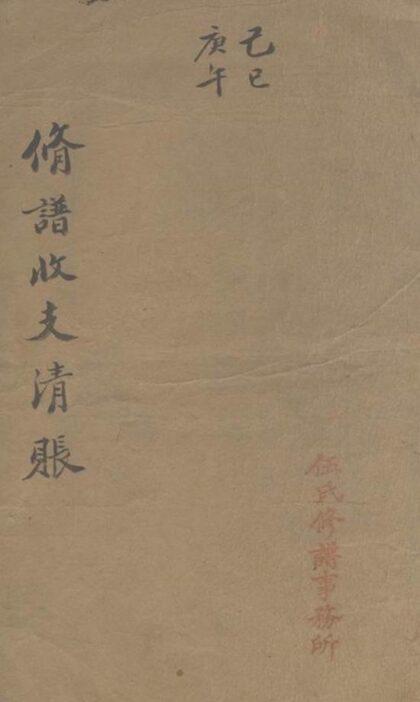 己巳
庚午
伍氏修譜事務所
脩譜收支清賬